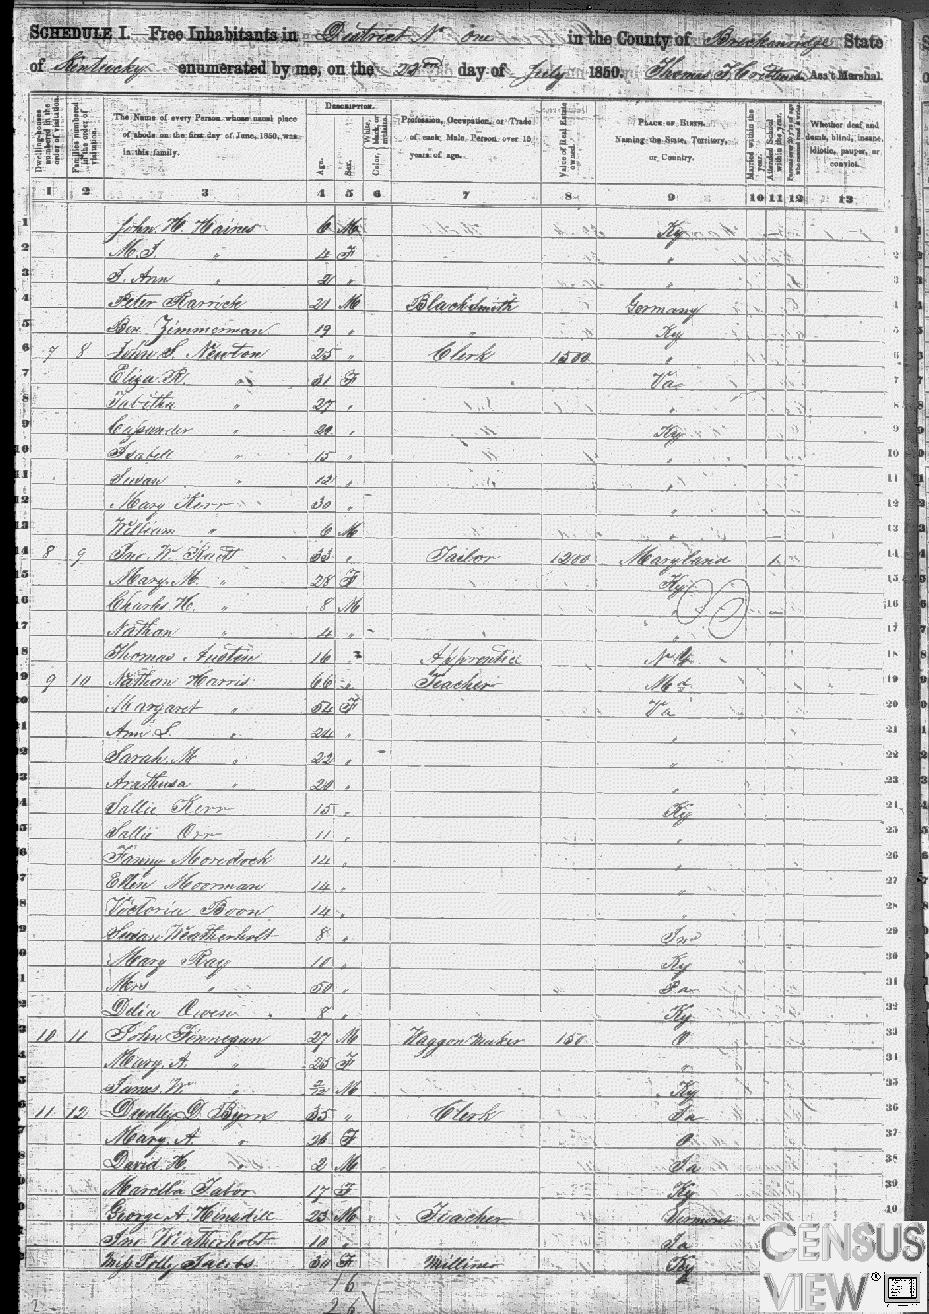 SCHEDULE I.—Free Inhabitants in District No one in the County of Breckenridge State
of Kentucky enumerated by me, on the 22nd day of July 1850. Thomas J. Ass't Marshal.
Dwelling-houses numbered in the order of visitation.
Families numbered in the order of visitation.
The Name of every Person whose usual place of abode on the first day of June, 1850, was in this family.
DESCRIPTION.
Age.
Sex.
White, black, or mulatto.
Color,
Profession, Occupation, or Trade of each Male Person over 15 years of age.
Value of Real Estate owned.
PLACE OF BIRTH. Naming the State, Territory, or Country.
Married within the year.
Attended School within the year.
Whether deaf and dumb, blind, insane, idiotic, pauper, or convict.
1 2 3 4 5 6 7 8 9 10 11 12 13
1 John H. Haines 6 M Ky 1
2 M. J. " 4 F " 2
3 J. Ann " 2 " " 3
4 Peter Rarrick 21 M Blacksmith Germany 4
5 Ben Zimmerman 19 " " Ky 5
6 7 8 John S. Newton 25 " Clerk 1500 " 6
7 Eliza R. " 31 F Va 7
8 Tabitha " 27 " " 8
9 " " Ky 9
10 Isabell " 15 " " 10
11 Susan " 12 " " 11
12 Mary Kerr 30 " " 12
13 William " 6 M " 13
14 8 9 Jno W. 33 " Tailor 1200 Maryland 1 14
15 Mary M. " 28 F Ky 15
16 Charles H. " 8 M " 16
17 Nathan " 4 " " 17
18 Thomas Austin 16 " Apprentice 18
19 9 10 Nathan Harris 66 " Teacher Md 19
20 Margaret " 54 F Va 20
21 Ann S. " 24 " " 21
22 Sarah M " 22 " " 22
23 Arathusa " 20 " " 23
24 Sallie Kerr 15 " Ky 24
25 Sallie Orr 11 " " 25
26 Fanny Moredock 14 " " 26
27 Ellen Moorman 14 " " 27
28 Victoria Boon 14 " " 28
29 Susan Weatherholt 8 " Ind 29
30 Mary Ray 10 " Ky 30
31 Mrs " 50 " Pa 31
32 Delia Owen 8 " Ky 32
33 10 11 John Finnegan 27 M Waggon Maker 150 O 33
34 Mary A. " 25 F " 34
35 James W " 2/12 M Ky 35
36 11 12 Dudley D. Byrns 35 " Clerk 36
37 Mary A. " 26 F O 37
38 David H. " 2 M 38
39 Maretta Tabor 17 F Ky 39
40 George A. Hinsdill 23 M Teacher Vermont 40
Jno Weatherholt 10 "
Miss Polly Jacobs 30 F Milliner Ky
16
26
CENSUS
VIEW®